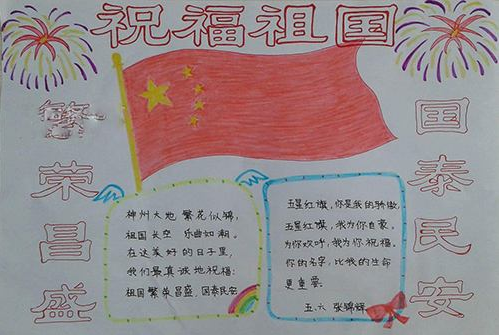 祝福祖国
繁荣昌盛
国泰民安
神州大地 繁花似锦,
祖国长空 乐曲如潮。
在这美好的日子里,
我们最真诚地祝福:
祖国繁荣昌盛、国泰民安
五星红旗,你是我的骄傲,
五星红旗,我为你自豪,
为你欢呼,我为你祝福,
你的名字,比我的生命
更重要。
五.六 张锦辉